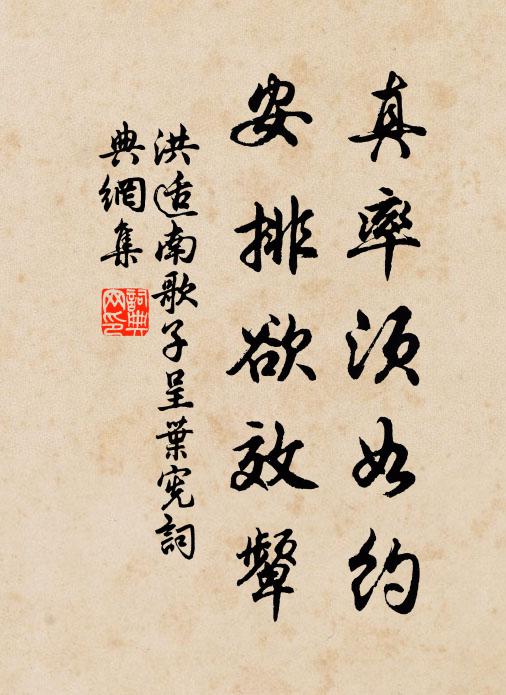 真率須如約
安排欲效顰
洪适南歌子呈葉宪詞
典網集
詞典
网印